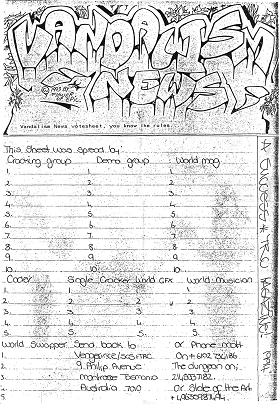 VANDALISM
NEWS
Vandalism News votesheet, you know the rules.
This sheet was spread by:
Cracking group Demo group World mag
1. 1. 1.
2. 2. 2.
3. 3. 3.
4. 4. 4.
5. 5. 5.
6. 6. 6.
7. 7. 7.
8. 8. 8.
9. 9. 9.
10. 10. 10.
Coder Single Cracker World GFX World musician
1. 1. 1. 1.
2. 2. 2. 2.
3. 3. 3. 3.
4. 4. 4. 4.
5. 5. 5. 5.
World Swapper Send back to: or Phone matt
1. Vengeance/
2. 9. Philip Avenue The dungeon on:
3. Montrose Tasmania
4. Australia 7010 or State of the Art
5.